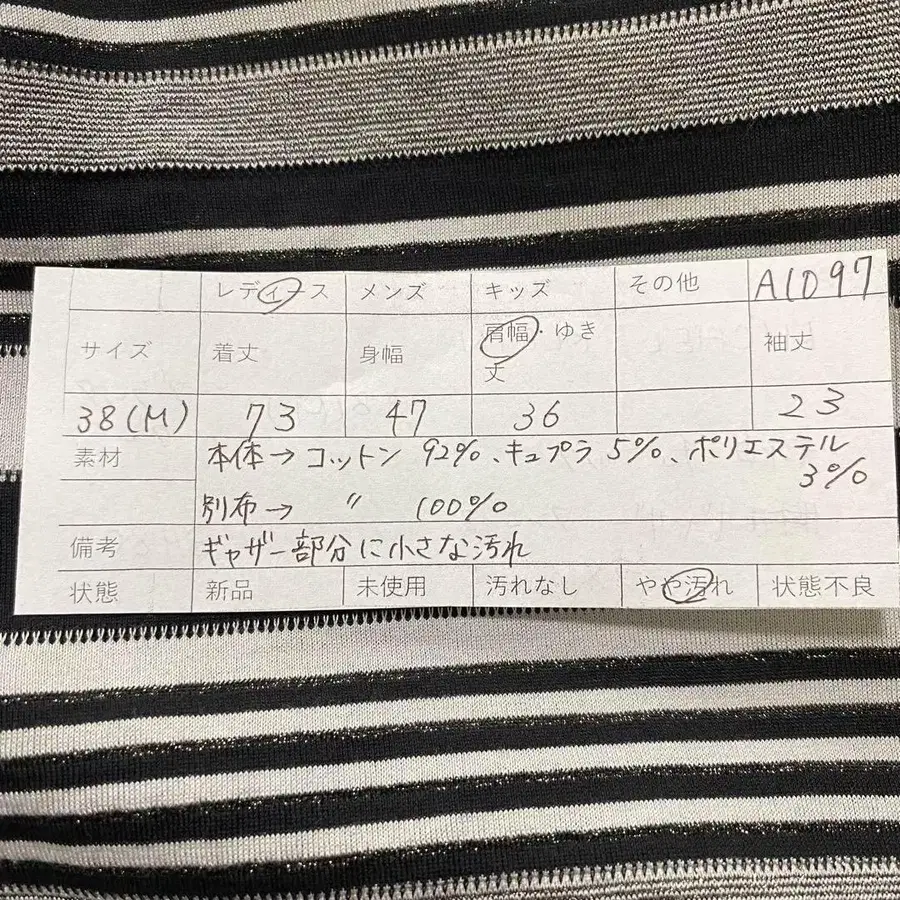 レディース メンズ キッズ その他 A1097
サイズ 着丈 身幅 肩幅・ゆき丈 袖丈
38(M) 73 47 36 23
素材 本体→コットン 92%、キュプラ 5%、ポリエステル
3%
別布→ 〃 100%
備考 ギャザー部分に小さな汚れ
状態 新品 未使用 汚れなし やや汚れ 状態不良